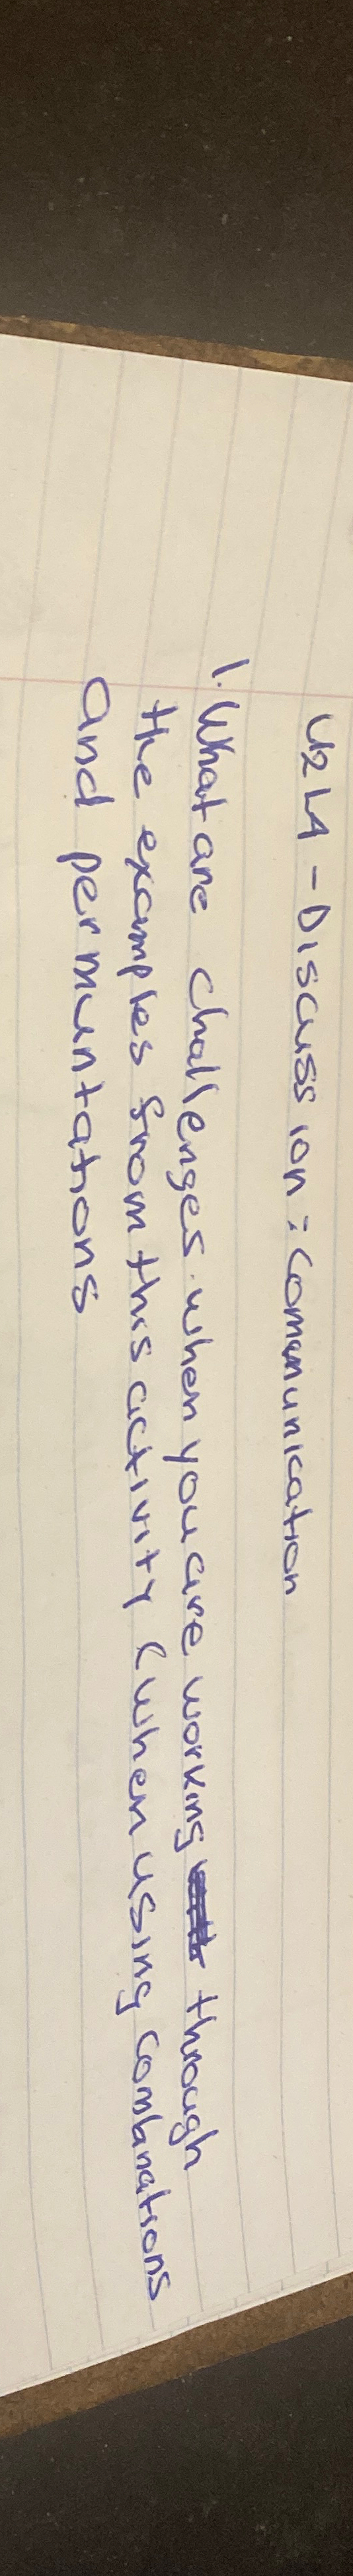 U2 L4 - Discussion: Communication
1. What are challenges when you are working through
the examples from this activity (when using combanations
and permuntations